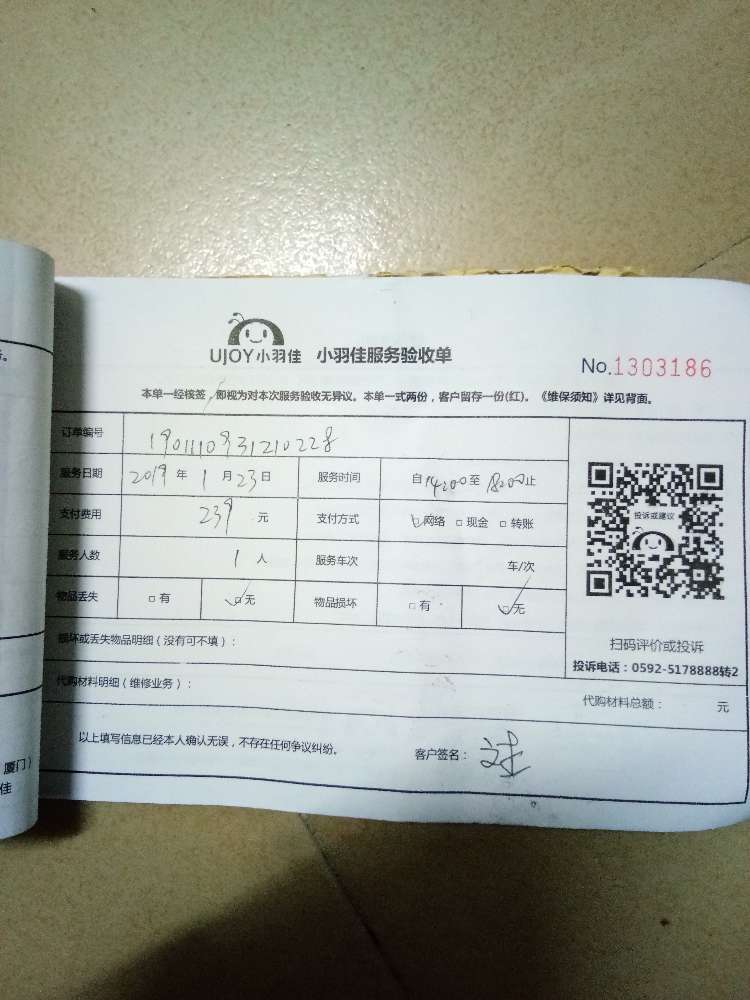 UJOY小羽佳 小羽佳服务验收单
No.1303186
本单一经核签，即视为对本次服务验收无异议。本单一式两份，客户留存一份(红)。《维保须知》详见背面。
订单编号 1901110931210228
服务日期 2019年1月23日 服务时间 自14:00至18:00止
支付费用 239元 支付方式 网络 现金 转账
服务人数 1人 服务车次 车/次
物品丢失 有 无 物品损坏 有 无
投诉或建议
扫码评价或投诉
投诉电话：0592-5178888转2
损坏或丢失物品明细（没有可不填）：
代购材料明细（维修业务）： 代购材料总额： 元
以上填写信息已经本人确认无误，不存在任何争议纠纷。 客户签名：
厦门）
佳